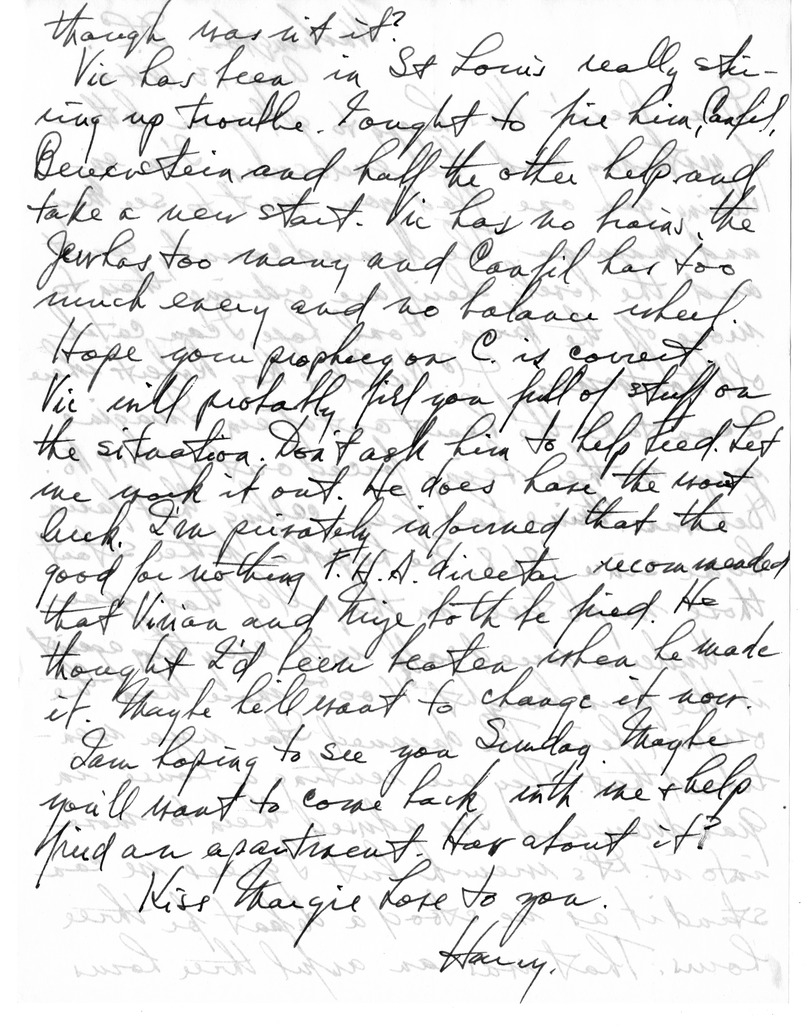 though was n't it?
Vic has been in St Louis really stir-
ring up trouble. I ought to fire him, Canfil,
Berenstein and half the other help and
take a new start. Vic has no brains, the
Jew has too many and Canfil has too
much energy and no balance wheel.
Hope your prophecy on C. is correct.
Vic will probably fill you full of stuff on
the situation. Don't ask him to help Fred. Let
me work it out. He does have the worst
luck. I'm privately informed that the
good for nothing F.H.A. director recommended
that Vivian and Nize both be fired. He
thought I'd been beaten when he made
it. Maybe he'll want to change it now.
I am hoping to see you Sunday. Maybe
you'll want to come back with me & help
find an apartment. How about it?
Kiss Margie Love to you.
Harry.